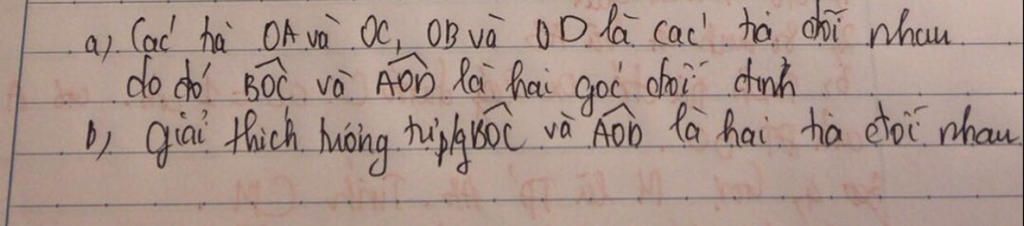 a) Các tia OA và OC, OB và OD là các tia đối nhau
do đó BOC và AOD là hai góc đối đỉnh
b) giải thích tương tự p/g BOC và AOD là hai tia đối nhau